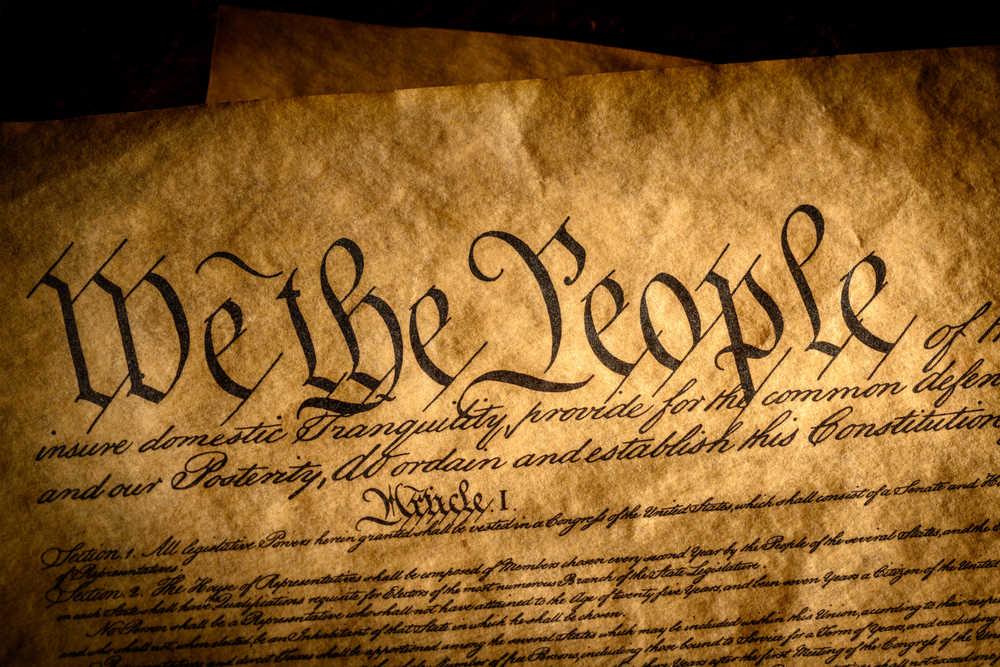 We the People of
insure domestic Tranquility, provide for the common defen
and our Posterity, do ordain and establish this Constitution
Article. I.
Section. 1. All legislative Powers herein granted shall be vested in a Congress of the United States, which shall consist of a Senate and
of Representatives.
Section. 2. The House of Representatives shall be composed of Members chosen every second Year by the People of the several States, and the
in each State shall have Qualifications requisite for Electors of the most numerous Branch of the State Legislature.
No Person shall be a Representative who shall not have attained to the Age of twenty five Years, and been seven Years a Citizen of the United
and who shall not, when elected, be an Inhabitant of that State in which he shall be chosen.
Representatives and direct Taxes shall be apportioned among the several States which may be included within this Union, according to their respec
Number of free Persons, including those bound to Service for a Term of Years, and excluding
Years after the first Meeting of the Congress of the